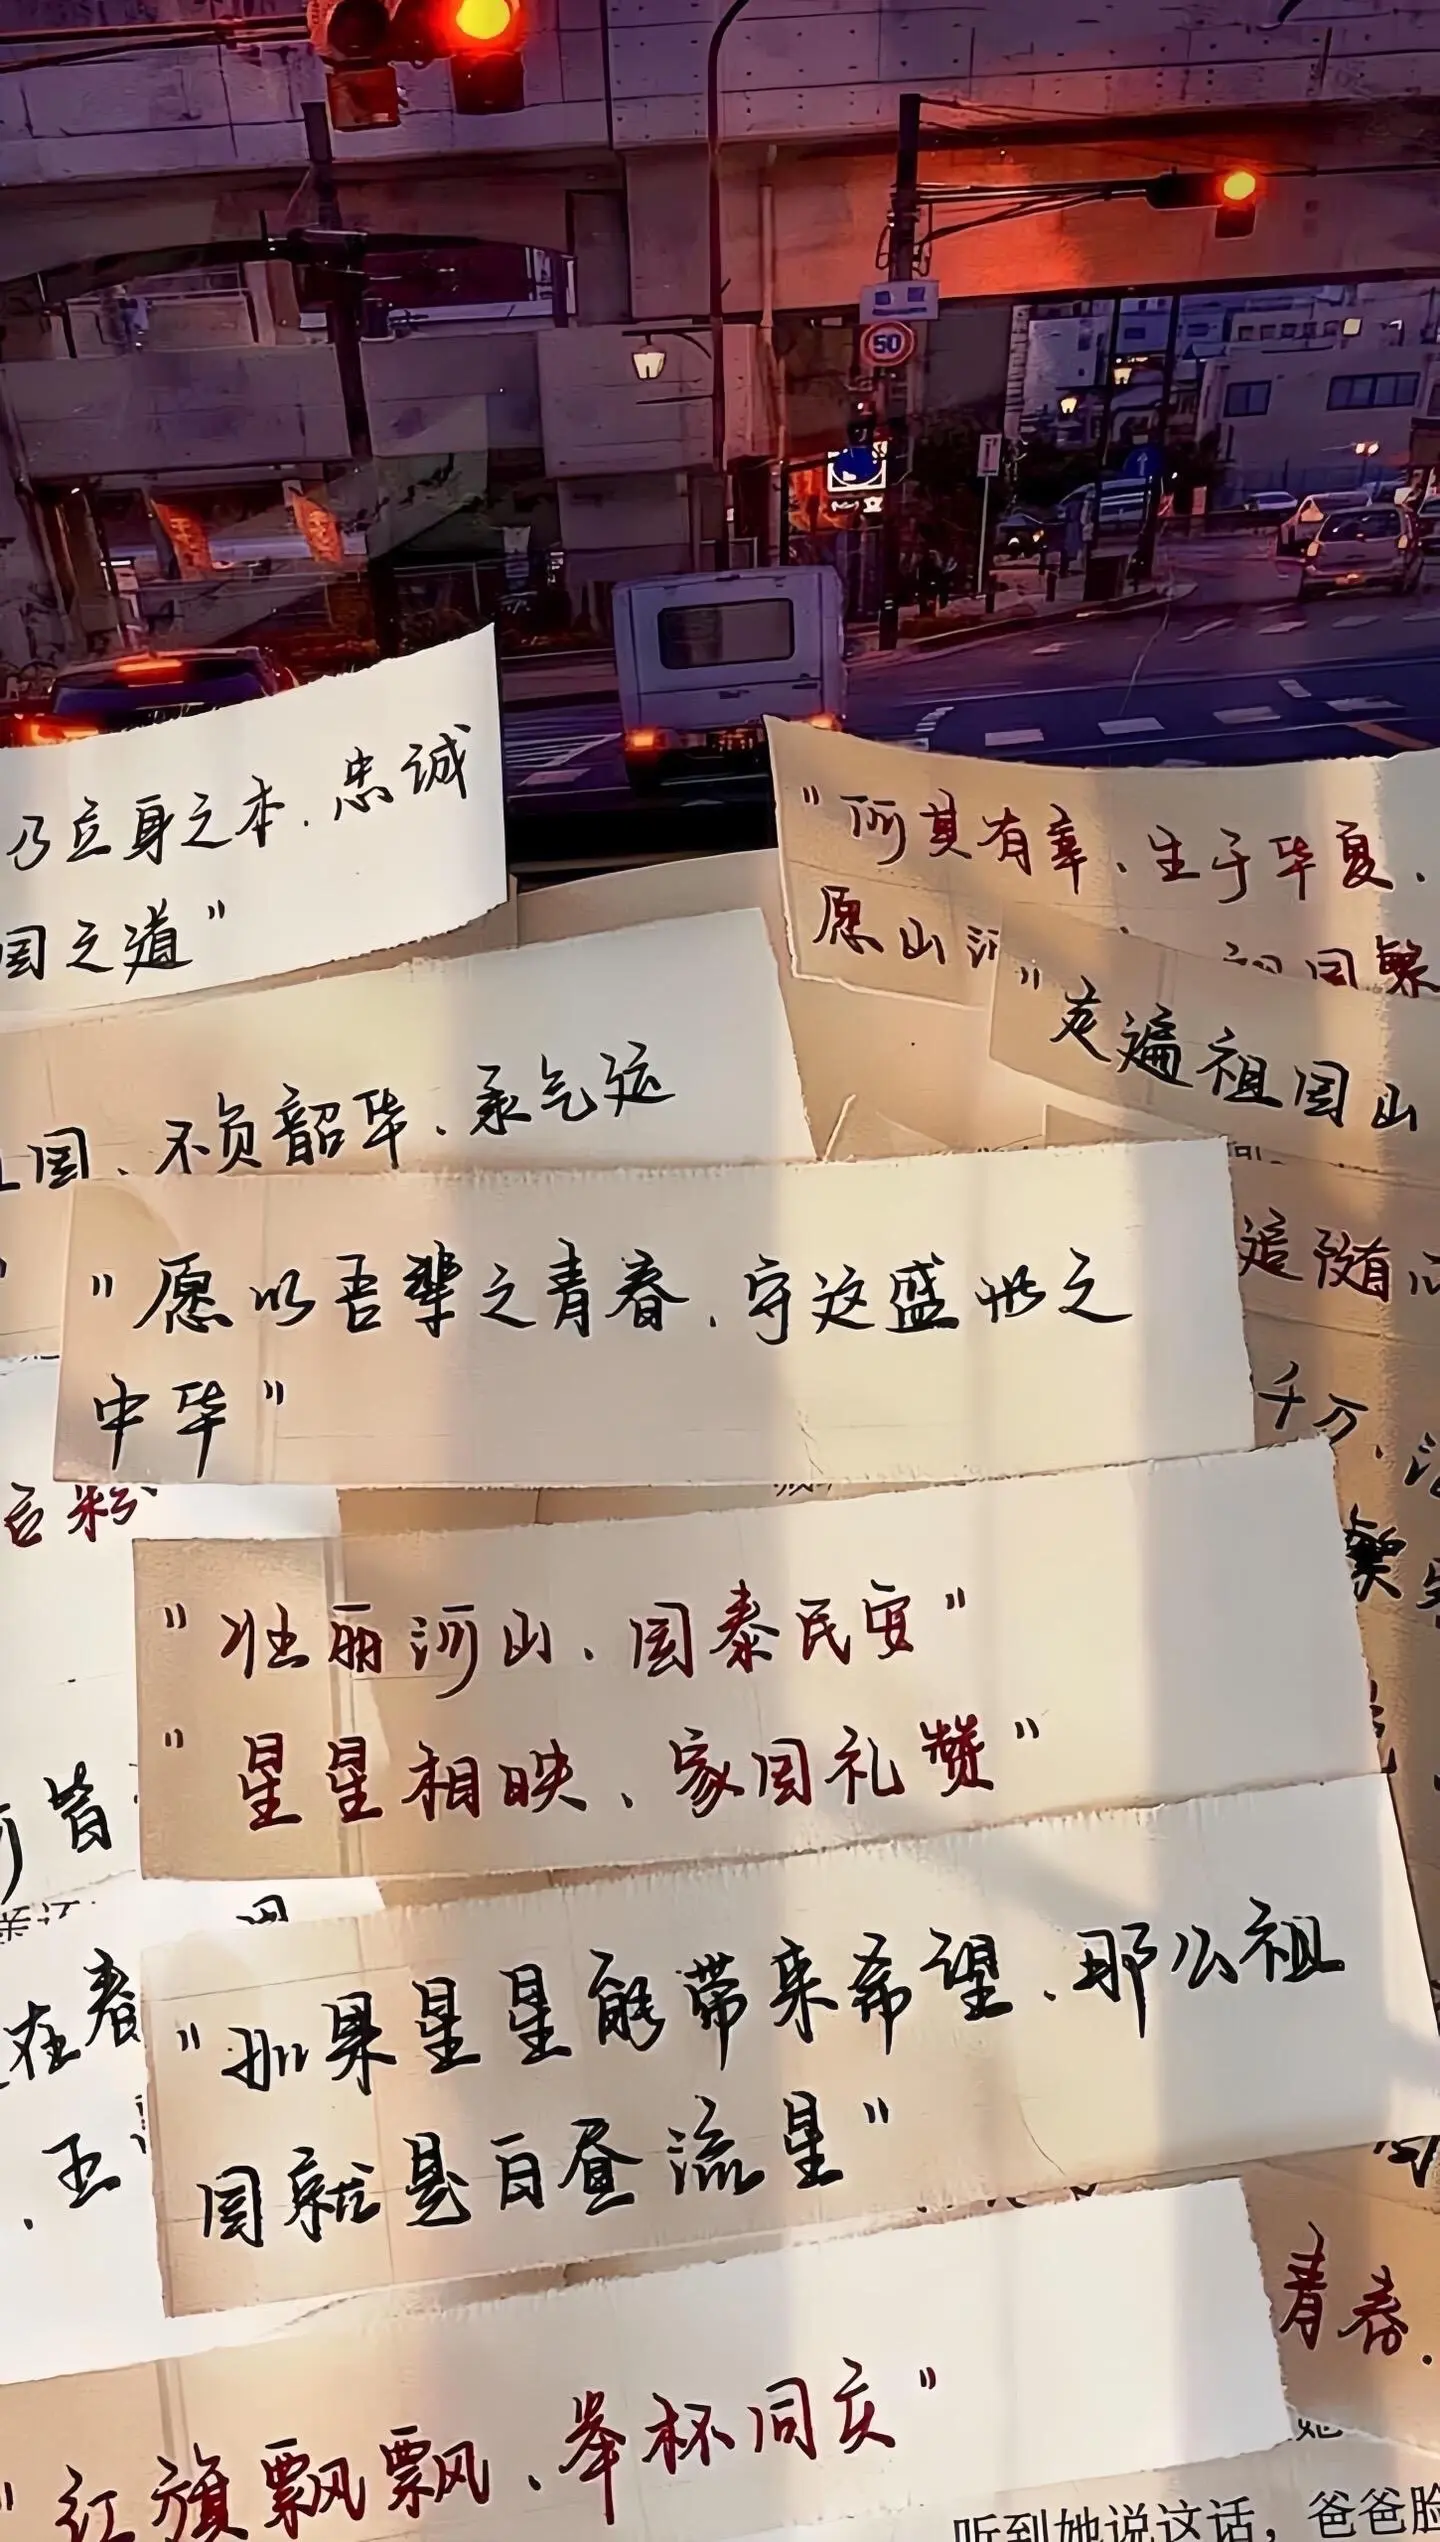 50
乃立身之本.忠诚
国之道"
"何其有幸.生于华夏.
愿山河
回繁
"走遍祖国山
国.不负韶华.承气运
"愿以吾辈之青春.守这盛世之
中华"
追随
千万.
言粉
"壮丽河山、国泰民安"
"星星相映、家国礼赞"
皆
在春
"如果星星能带来希望.那么祖
国就是白昼流星"
.五
青春.
"红旗飘飘.举杯同庆"
听到她说这话，爸爸脸